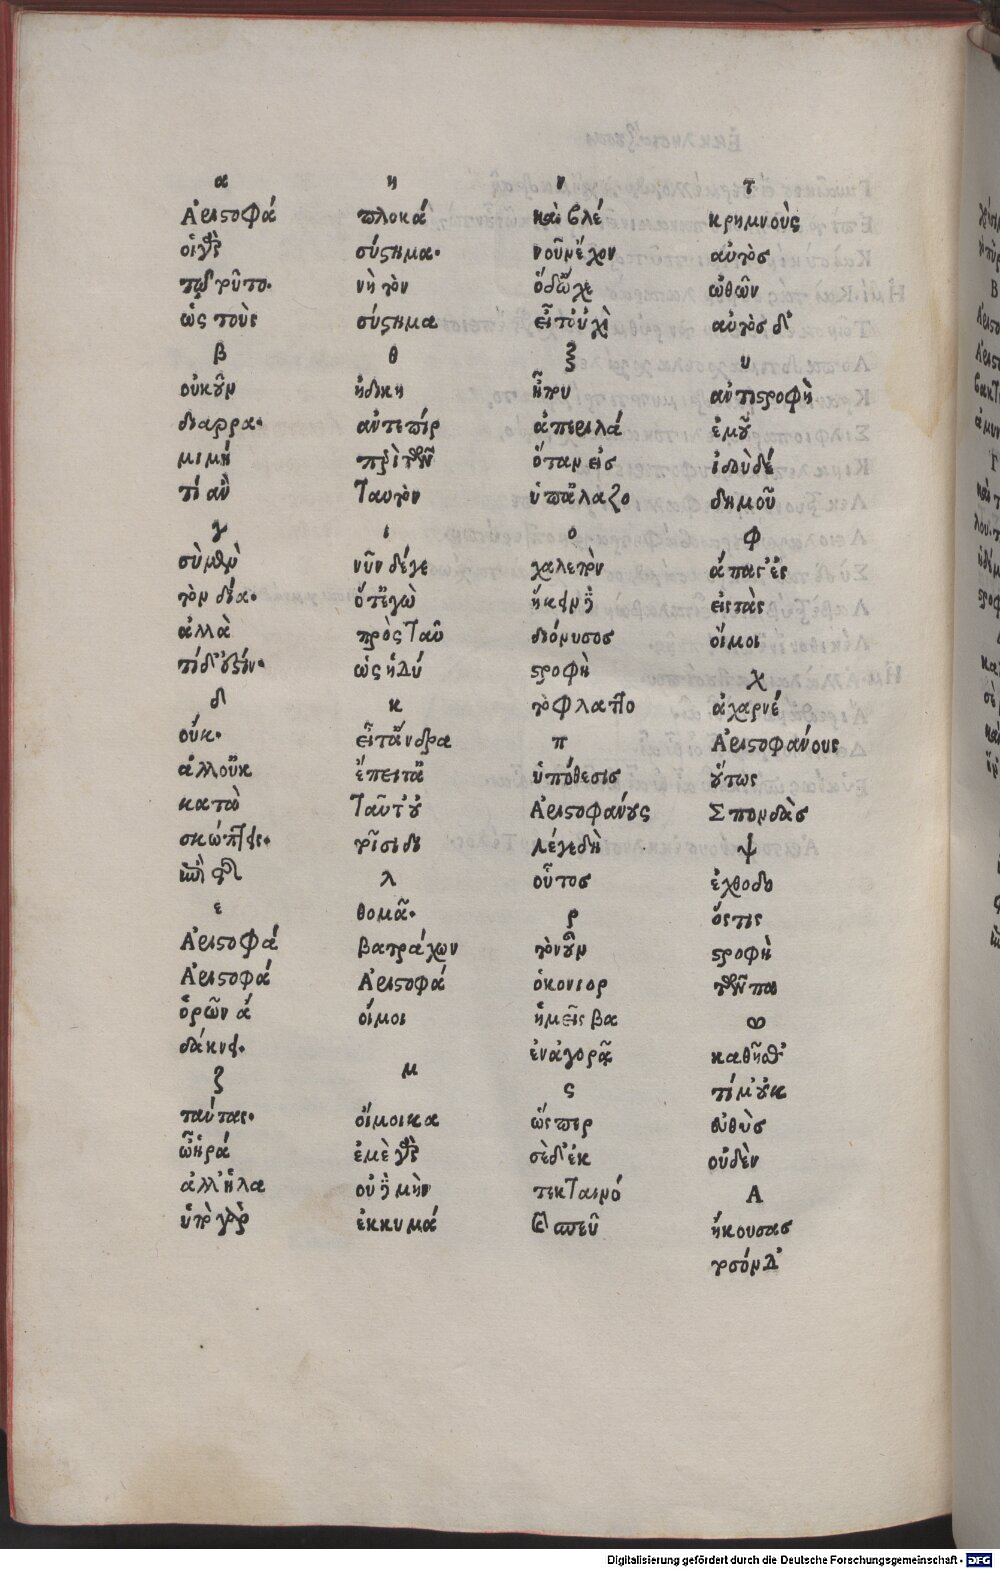 α
Ἀριστοφά
οἱ γὰρ
τῷ πρῦτο.
ὡς τοὺς
β
οὐκοῦν
διαρρα.
μιμή
τί αὖ
γ
σὺ μὲν
τὸν δία.
ἀλλὰ
τί δ' οὐξύν.
δ
οὔκ.
ἀλλ' οὔκ
κατὼ
σκώπτει.
ε
Ἀριστοφά
Ἀριστοφά
ὁρῶν ἁ
δάκνει.
ζ
ταύτας.
ὦ ἡρά
ἀλλ' ἧλα
ὑπὲρ γὰρ
η
πλοκά
σύστημα.
νὴ τὸν
σύστημα
θ
ἠδίκη
αὐτεπίρ
πρὶ τῶν
Ταυτὸν
ι
νῦν δέγε
ὅτ' ἐγὼ
πρὸς Ταῦ
ὡς ἡδύ
κ
εἶτ' ἄνδρα
ἔπειτα
Ταῦτ' οὐ
λ
θοιμᾶ.
βατράχων
Ἀριστοφά
οἴμοι
μ
οἴμοι κα
ἐμὲ γὰρ
οὐ ἢ μὴν
ἐκκυμά
ν
καὶ βλέ
νοῦν ἔχον
ὅδ' ὦχε
εἶτ' οὐχὶ
ξ
ἤπου
ἀπειλά
ὅταν εἰς
ὑπᾴλαζο
ο
χαλεπὸν
διόνυσος
στροφὴ
τὸ φλαττο
π
ὑπόθεσις
Ἀριστοφάνους
λέγε δὴ
οὗτος
ρ
τὸν γοῦν
ὁ κονιορ
ἡμεῖς βα
ἐν ἀγορᾷ
ς
ὥσπερ
σὲ δ' ἐκ
τεκταινό
θ απευ
τ
κρημνοὺς
αὐτὸς
ὠθῶν
αὐτὸς δ'
υ
ἀντιστροφὴ
ἐμοῦ
ἰδοὺ δέ
δημοῦ
φ
ἅπας ἐς
εἰς τὰς
οἴμοι
χ
ἀχαρνέ
Ἀριστοφάνους
οὕτως
Σπονδὰς
ψ
ἐχθοδο
ὅστις
στροφὴ
τῶν πα
ω
καθῆσθ'
τί μ' οὐκ
εὐθὺς
οὐδὲν
Α
ἤκουσας
γρσόνΔ'
Digitalisierung gefördert durch die Deutsche Forschungsgemeinschaft - DFG